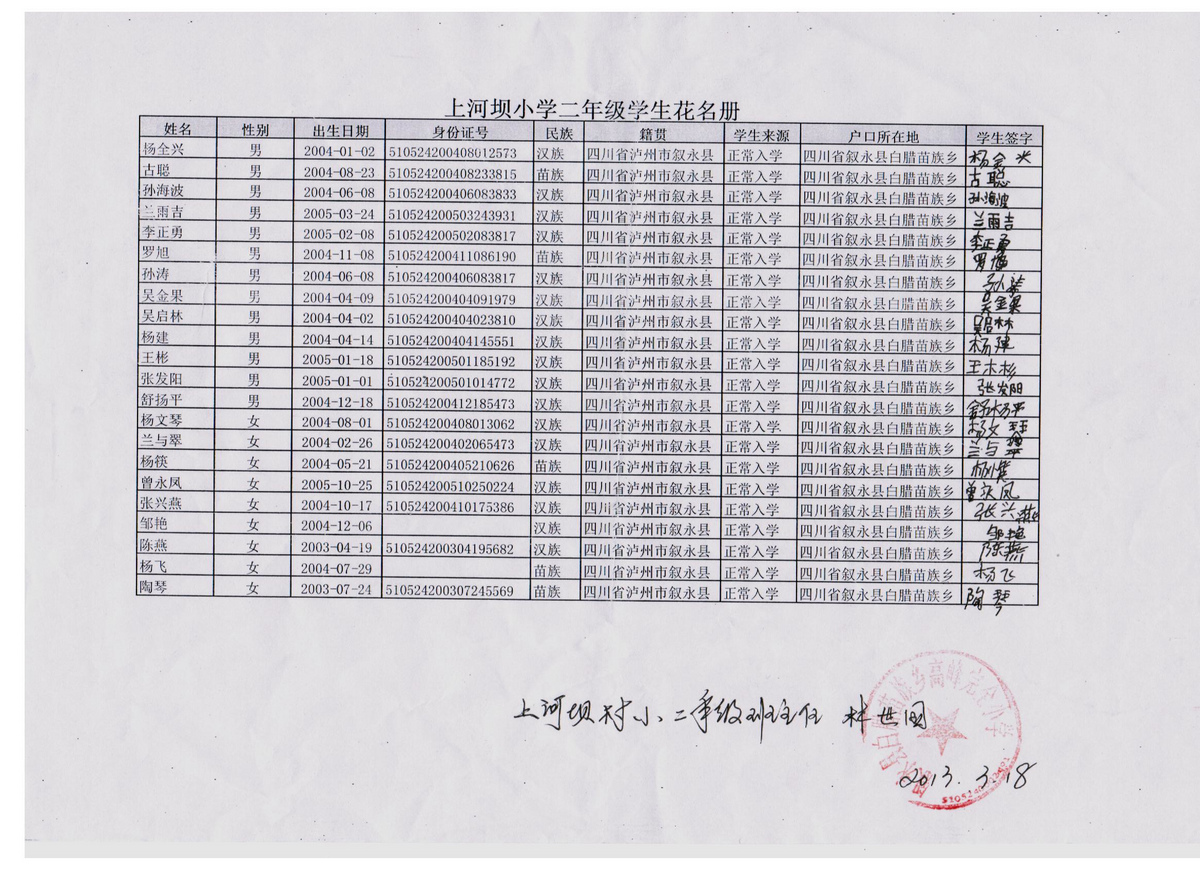 上河坝小学二年级学生花名册
姓名 性别 出生日期 身份证号 民族 籍贯 学生来源 户口所在地 学生签字
杨全兴 男 2004-01-02 510524200408012573 汉族 四川省泸州市叙永县 正常入学 四川省叙永县白腊苗族乡 杨全兴
古聪 男 2004-08-23 510524200408233815 苗族 四川省泸州市叙永县 正常入学 四川省叙永县白腊苗族乡 古聪
孙海波 男 2004-06-08 510524200406083833 汉族 四川省泸州市叙永县 正常入学 四川省叙永县白腊苗族乡 孙海波
兰雨吉 男 2005-03-24 510524200503243931 汉族 四川省泸州市叙永县 正常入学 四川省叙永县白腊苗族乡 兰雨吉
李正勇 男 2005-02-08 510524200502083817 汉族 四川省泸州市叙永县 正常入学 四川省叙永县白腊苗族乡 李正勇
罗旭 男 2004-11-08 510524200411086190 苗族 四川省泸州市叙永县 正常入学 四川省叙永县白腊苗族乡
孙涛 男 2004-06-08 510524200406083817 汉族 四川省泸州市叙永县 正常入学 四川省叙永县白腊苗族乡 孙涛
吴金果 男 2004-04-09 510524200404091979 汉族 四川省泸州市叙永县 正常入学 四川省叙永县白腊苗族乡 吴金果
吴启林 男 2004-04-02 510524200404023810 汉族 四川省泸州市叙永县 正常入学 四川省叙永县白腊苗族乡
杨建 男 2004-04-14 510524200404145551 汉族 四川省泸州市叙永县 正常入学 四川省叙永县白腊苗族乡
王彬 男 2005-01-18 510524200501185192 汉族 四川省泸州市叙永县 正常入学 四川省叙永县白腊苗族乡 王彬
张发阳 男 2005-01-01 510524200501014772 汉族 四川省泸州市叙永县 正常入学 四川省叙永县白腊苗族乡 张发阳
舒扬平 男 2004-12-18 510524200412185473 汉族 四川省泸州市叙永县 正常入学 四川省叙永县白腊苗族乡 舒杨平
杨文琴 女 2004-08-01 510524200408013062 汉族 四川省泸州市叙永县 正常入学 四川省叙永县白腊苗族乡 杨文琴
兰与翠 女 2004-02-26 510524200402065473 汉族 四川省泸州市叙永县 正常入学 四川省叙永县白腊苗族乡 兰与翠
杨筷 女 2004-05-21 510524200405210626 苗族 四川省泸州市叙永县 正常入学 四川省叙永县白腊苗族乡
曾永凤 女 2005-10-25 510524200510250224 汉族 四川省泸州市叙永县 正常入学 四川省叙永县白腊苗族乡 曾永凤
张兴燕 女 2004-10-17 510524200410175386 汉族 四川省泸州市叙永县 正常入学 四川省叙永县白腊苗族乡 张兴燕
邹艳 女 2004-12-06 汉族 四川省泸州市叙永县 正常入学 四川省叙永县白腊苗族乡 邹艳
陈燕 女 2003-04-19 510524200304195682 汉族 四川省泸州市叙永县 正常入学 四川省叙永县白腊苗族乡 陈燕
杨飞 女 2004-07-29 苗族 四川省泸州市叙永县 正常入学 四川省叙永县白腊苗族乡 杨飞
陶琴 女 2003-07-24 510524200307245569 苗族 四川省泸州市叙永县 正常入学 四川省叙永县白腊苗族乡 陶琴
上河坝村小二年级班主任 林世国
2013.3.18